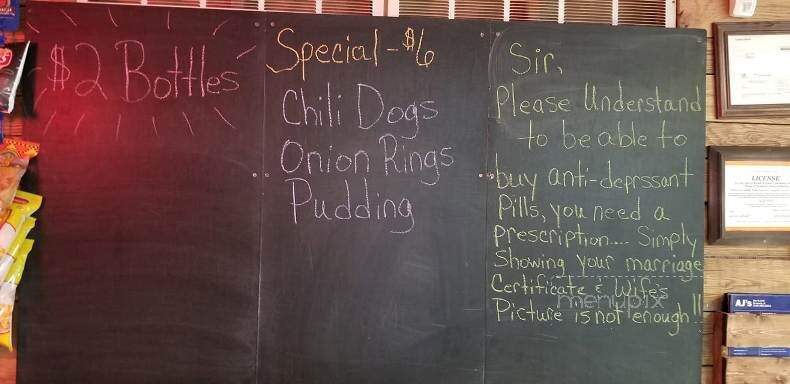 $2 Bottles
Special - $6
Chili Dogs
Onion Rings
Pudding
Sir,
Please Understand
to be able to
buy anti-deprssant
Pills, you need a
Prescription.... Simply
Showing your marriage
Certificate & Wife's
Picture is not enough!!
menupix
LICENSE
AJ's